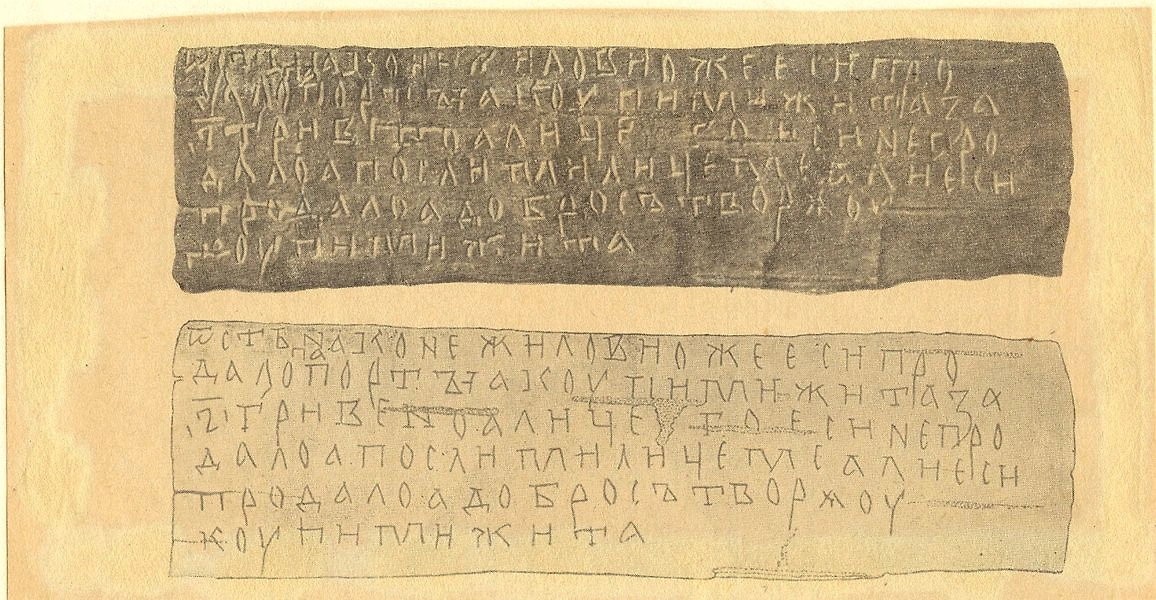 ѿстьпанаконежиловиожеесипро
далопортъıакоупимижитаза
҂ѕ҃гривеноалицегоесинепро
далоапослимилицемеалиеси
продалоадобросътворѧоу
коупимижита
ѿстьпанаконежиловиожеесипро
далопортъıакоупимижитаза
҂ѕ҃гривеноалицегоесинепро
далоапослимилицемеалиеси
продалоадобросътворѧоу
коупимижита